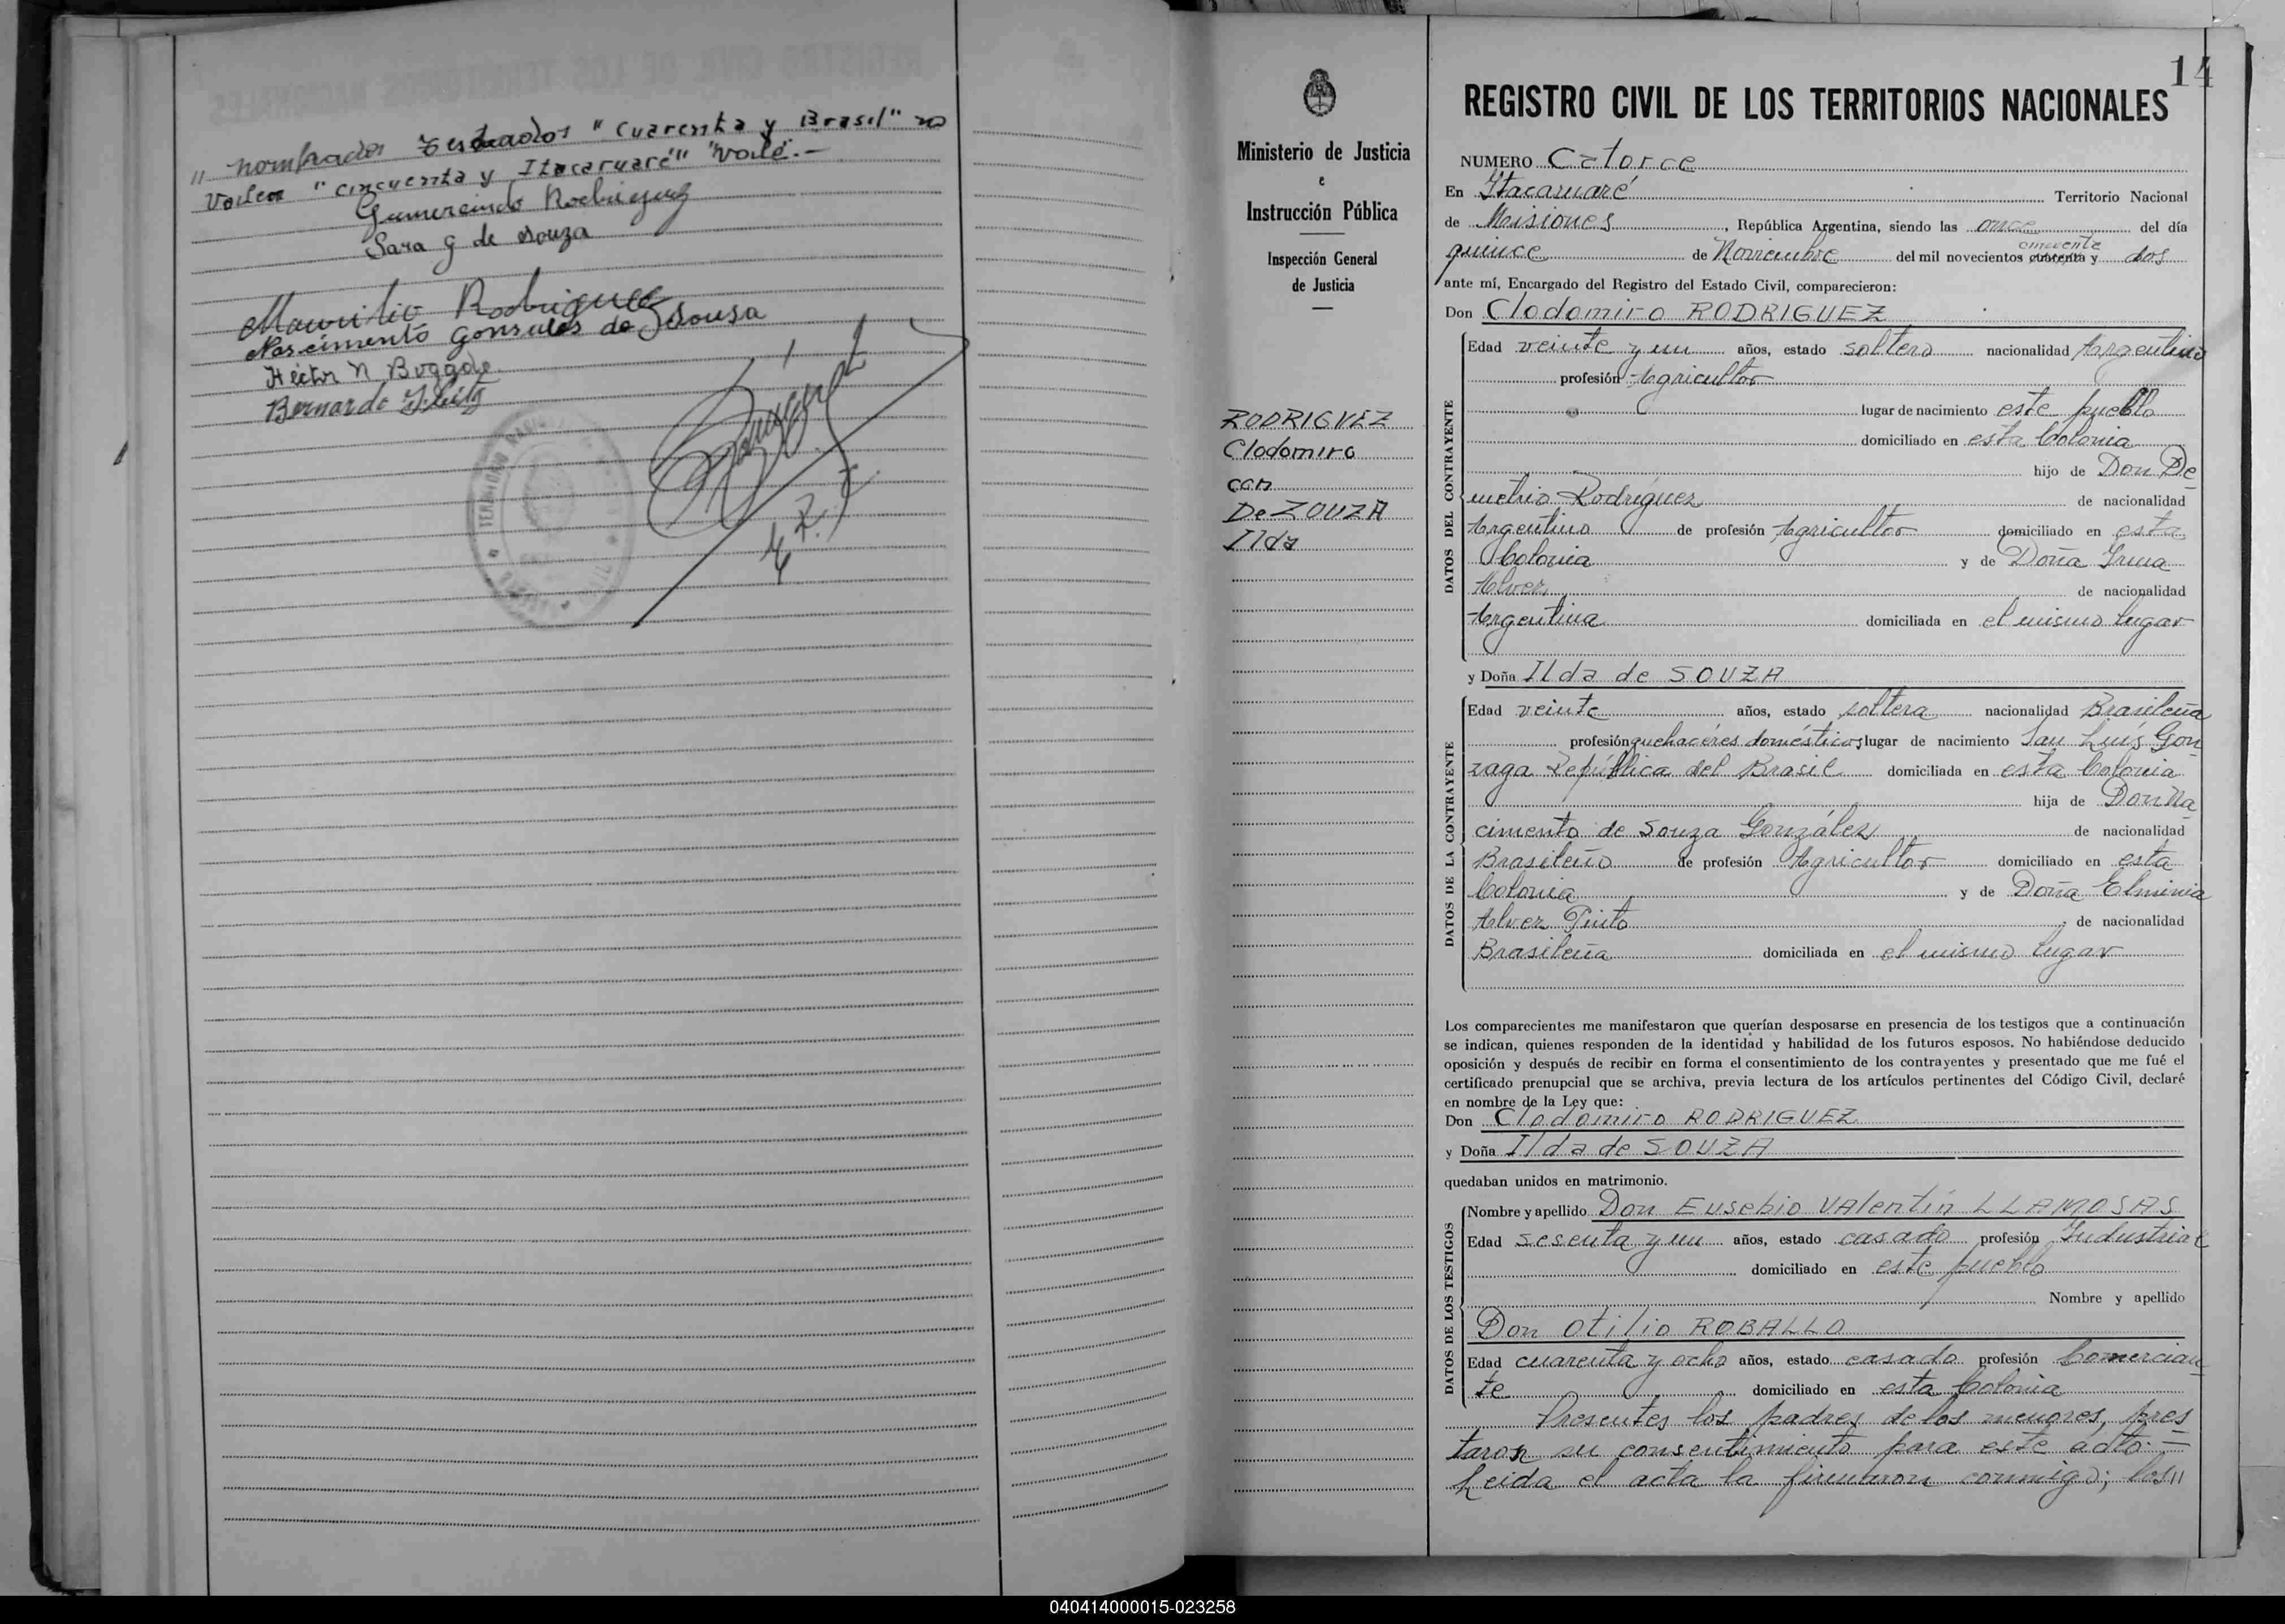 " nombrados Testados "Cuarenta y Brasil" no
valen "cincuenta y Itacaruaré" "vale".-
Gumercindo Rodriguez
Sara G de Souza
Mauritio Rodriguez
Nascimento Gonsales de Sousa
Héctor N
Bernardo
4 Z.
14
REGISTRO CIVIL DE LOS TERRITORIOS NACIONALES
Ministerio de Justicia
e
Instrucción Pública
Inspección General
de Justicia
RODRIGUEZ
Clodomiro
con
De ZOUZA
Ilda
NUMERO Catorce
En Itacaruaré Territorio Nacional
de Misiones, República Argentina, siendo las once del día
cincuenta
quince de Noviembre del mil novecientos cuarenta y dos
ante mí, Encargado del Registro del Estado Civil, comparecieron:
Don Clodomiro RODRIGUEZ
DATOS DEL CONTRAYENTE
Edad veinte y un años, estado soltero nacionalidad Argentino
profesión Agricultor
lugar de nacimiento este pueblo
domiciliado en esta Colonia
hijo de Don De
metrio Rodríguez de nacionalidad
Argentino de profesión Agricultor domiciliado en esta
Colonia y de Doña Irma
Alvez de nacionalidad
Argentina domiciliada en el mismo lugar
y Doña Ilda de SOUZA
DATOS DE LA CONTRAYENTE
Edad veinte años, estado soltera nacionalidad Brasileña
profesión quehaceres domésticos lugar de nacimiento San Luis Gon
zaga República del Brasil domiciliada en esta Colonia
hija de Don Na
cimento de Souza González de nacionalidad
Brasileño de profesión Agricultor domiciliado en esta
Colonia y de Doña Elminia
Alvez Pinto de nacionalidad
Brasileña domiciliada en el mismo lugar
Los comparecientes me manifestaron que querían desposarse en presencia de los testigos que a continuación
se indican, quienes responden de la identidad y habilidad de los futuros esposos. No habiéndose deducido
oposición y después de recibir en forma el consentimiento de los contrayentes y presentado que me fué el
certificado prenupcial que se archiva, previa lectura de los artículos pertinentes del Código Civil, declaré
en nombre de la Ley que:
Don Clodomiro RODRIGUEZ
y Doña Ilda de SOUZA
quedaban unidos en matrimonio.
DATOS DE LOS TESTIGOS
Nombre y apellido Don Eusebio Valentín LLAMOSAS
Edad sesenta y un años, estado casado profesión Industrial
domiciliado en este pueblo
Nombre y apellido
Don Otilio ROBALLO
Edad cuarenta y ocho años, estado casado profesión Comercian
te domiciliado en esta Colonia
Presentes los padres de los menores, pres
taron su consentimiento para este acto.=
Leida el acta la firmaron conmigo; los"
040414000015-023258